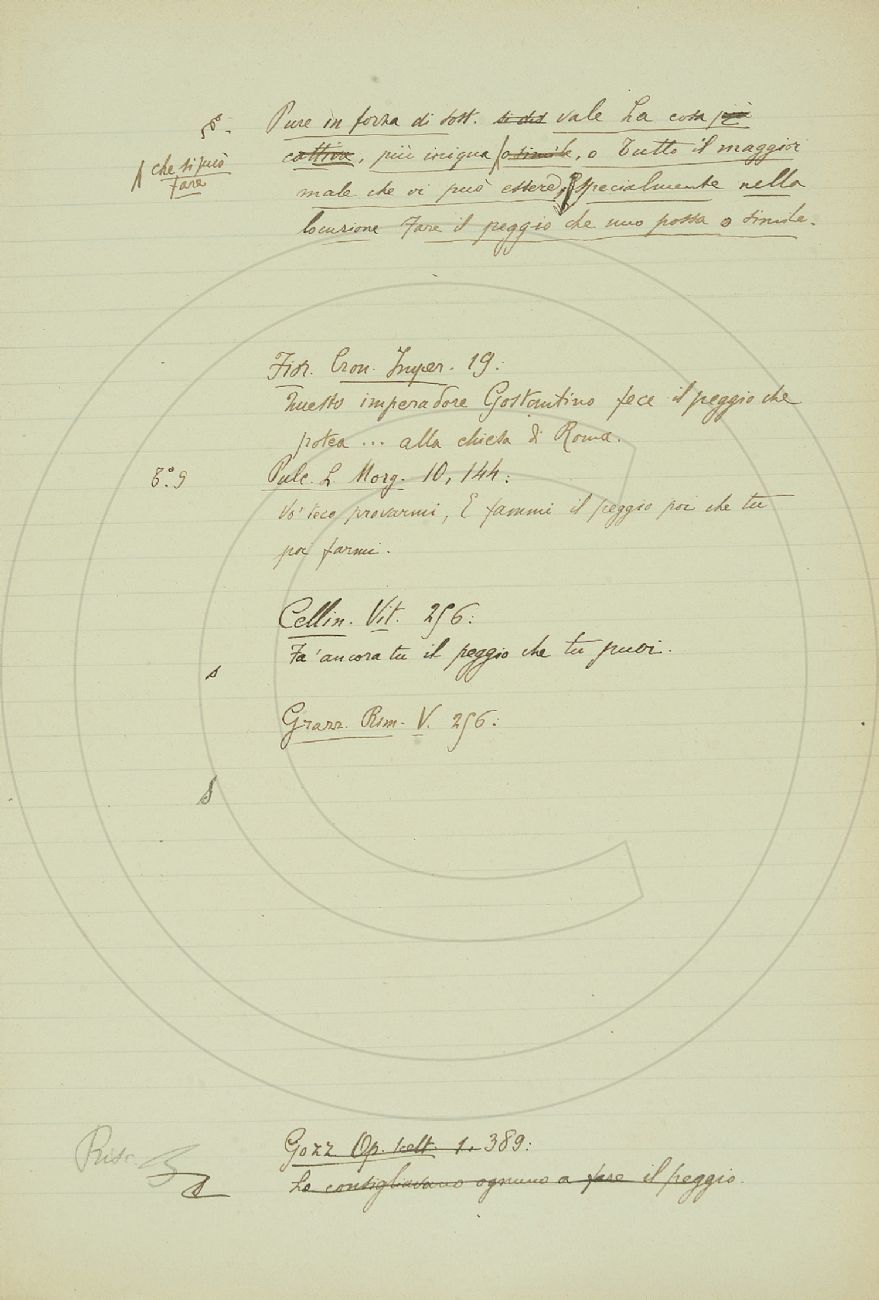 5°. Pure in forza di sost. si des vale La cosa più
cattiva, più iniqua o simile, o Tutto il maggior
che si può
fare
male che vi può essere, specialmente nella
locuzione Fare il peggio che uno possa o simile.
Fior. Cron. Imper. 19:
Questo imperadore Gostantino fece il peggio che
potea ... alla chiesa di Roma.
Pulc. L. Morg. 10, 144:
Vo' teco provarmi, E fammi il peggio poi che tu
poi farmi.
Cellin. Vit. 256:
Fa' ancora tu il peggio che tu puoi.
Grazz. Rim. V. 256:
Gozz. Op. scelt. 1. 389:
Lo consigliavano ognuno a fare il peggio.